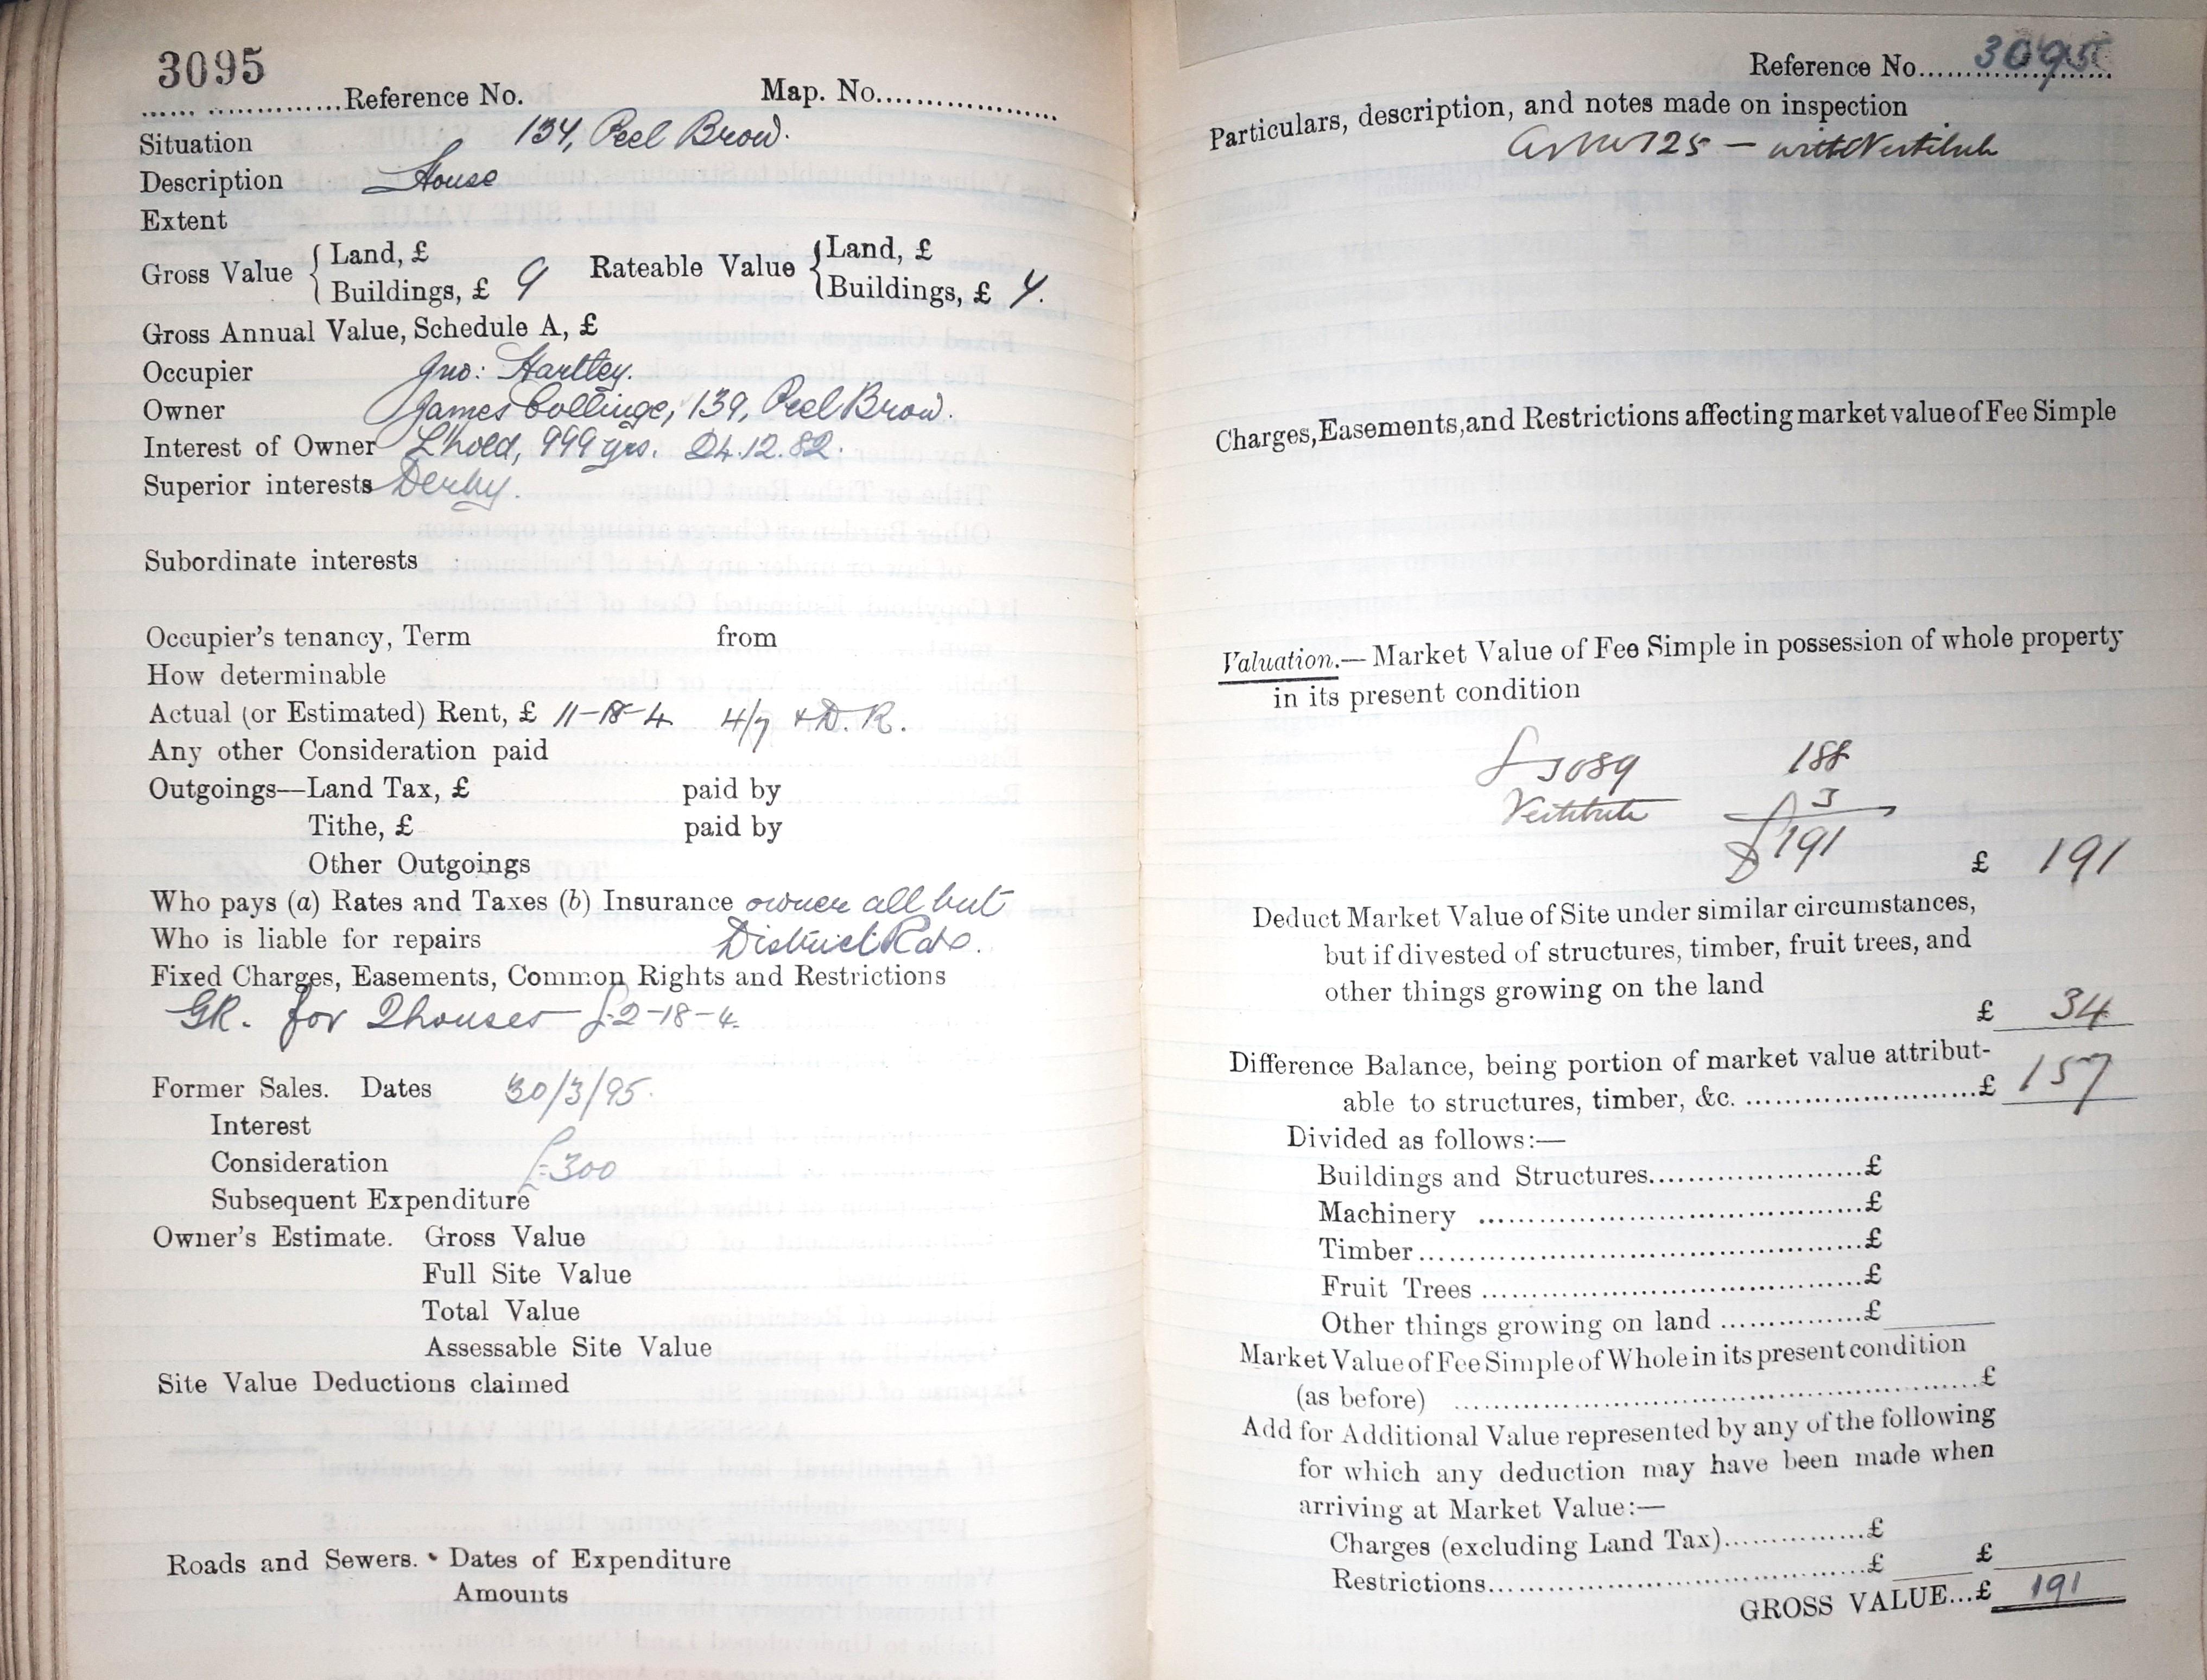 3095
Reference No. Map. No.
Situation 134, Peel Brow.
Description House
Extent
Gross Value { Land, £ Rateable Value { Land, £
Buildings, £ 9 Buildings, £ 7.
Gross Annual Value, Schedule A, £
Occupier Jno: Hartley.
Owner James Collinge, 139, Peel Brow.
Interest of Owner L'hold, 999 yrs. 24.12.82.
Superior interests Derby.
Subordinate interests
Occupier's tenancy, Term from
How determinable
Actual (or Estimated) Rent, £ 11-18-4 4/7 + D.R.
Any other Consideration paid
Outgoings—Land Tax, £ paid by
Tithe, £ paid by
Other Outgoings
Who pays (a) Rates and Taxes (b) Insurance owner all but
Who is liable for repairs District Rate.
Fixed Charges, Easements, Common Rights and Restrictions
GR. for 2 houses £2-18-4.
Former Sales. Dates 30/3/95.
Interest
Consideration £300
Subsequent Expenditure
Owner's Estimate. Gross Value
Full Site Value
Total Value
Assessable Site Value
Site Value Deductions claimed
Roads and Sewers. Dates of Expenditure
Amounts
Reference No. 3095
Particulars, description, and notes made on inspection
125 — with Vestibule
Charges, Easements, and Restrictions affecting market value of Fee Simple
Valuation.—Market Value of Fee Simple in possession of whole property
in its present condition
3089 188
Vestibule 3
£191
£ 191
Deduct Market Value of Site under similar circumstances,
but if divested of structures, timber, fruit trees, and
other things growing on the land
£ 34
Difference Balance, being portion of market value attribut-
able to structures, timber, &c. £ 157
Divided as follows:—
Buildings and Structures £
Machinery £
Timber £
Fruit Trees £
Other things growing on land £
Market Value of Fee Simple of Whole in its present condition
(as before) £
Add for Additional Value represented by any of the following
for which any deduction may have been made when
arriving at Market Value:—
Charges (excluding Land Tax) £
Restrictions £ £
GROSS VALUE...£ 191